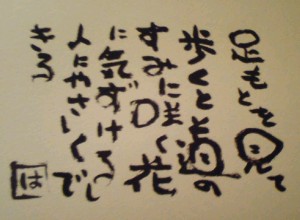 足もとを見て
歩くと道の
すみに咲く花
に気ずけるし
人にやさしくで
きる
は